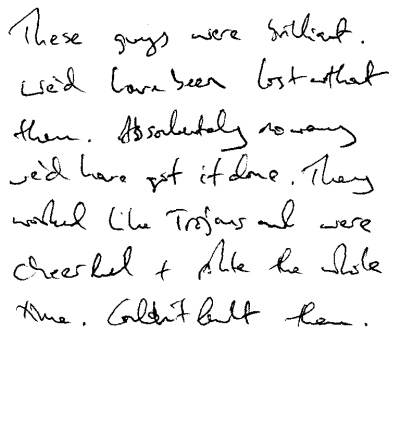 These guys were brilliant.
we'd have been lost without
them. Absolutely no way
we'd have got it done. They
worked like Trojans and were
cheerful + polite the whole
time. Couldn't fault them.